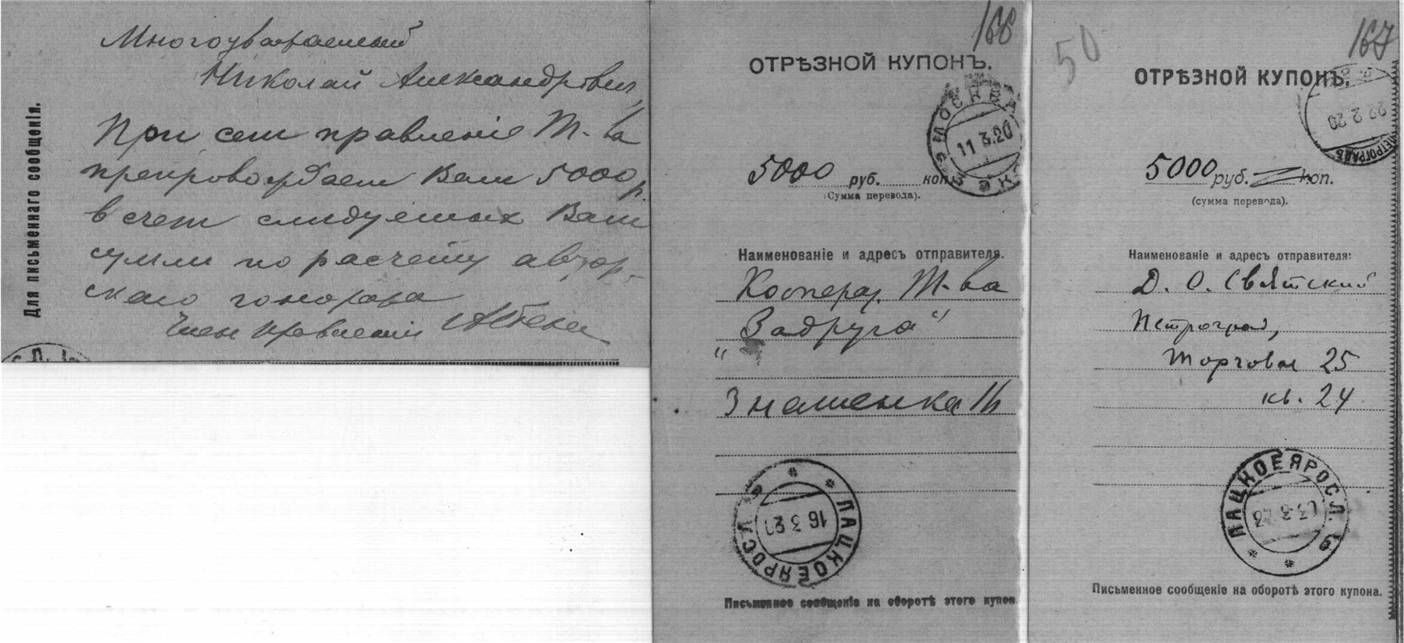 Для письменнаго сообщенія.
Многоуважаемый
Николай Александрович,
При сем правленіе Т-ва
препровождает Вам 5000 р.
в счет следуемых Вам
сумм по расчету автор-
скаго гонорара
Член правления
166
ОТРѢЗНОЙ КУПОНЪ.
МОСКВА
11 3.20
5000 руб. коп.
(Сумма перевода).
Наименованіе и адресъ отправителя.
Коопер. Т-ва
"Задруга"
Знаменка 16
ЛАЦКОЕ ЯРОСЛ.
16 3 20
Письменное сообщеніе на оборотѣ этого купона
50
167
ОТРѢЗНОЙ КУПОНЪ.
ПЕТРОГРАДЪ
22 2 20
5000 руб. коп.
(сумма перевода).
Наименованіе и адресъ отправителя:
Д. О. Святский
Петроград,
Торговая 25
кв. 24
ЛАЦКОЕ ЯРОСЛ.
Письменное сообщеніе на оборотѣ этого купона.